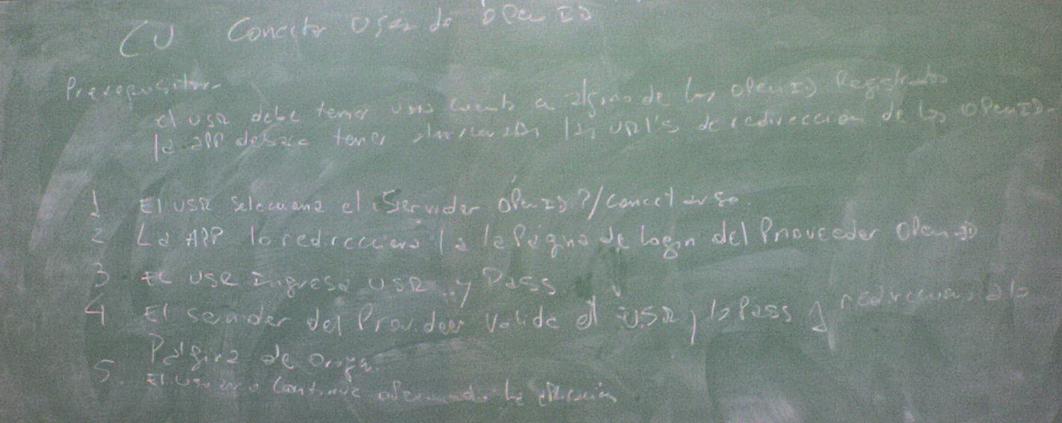 CU Conectar Usando OpenID
Prerequisitos
el usr debe tener una cuenta a alguno de los openID Registrados
la app debera tener las URL's de redireccion de los OPenID.
1 El usr selecciona el Servidor OPenID P/conectarse.
2 La APP lo redirecciona a la Página de login del Proveedor OPenID
3 El usr Ingresa USR y Pass
4 El servidor del Proveedor valida el USR y la Pass y redirecciona a la
Página de Origen.
5. El Usuario Continua la aplicación